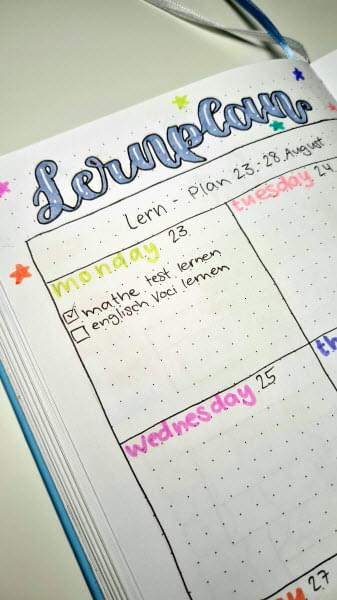 Lernplan
Lern - Plan 23.-28. August
monday 23
tuesday 24
mathe test lernen
englisch Voci lernen
wednesday 25
th
27